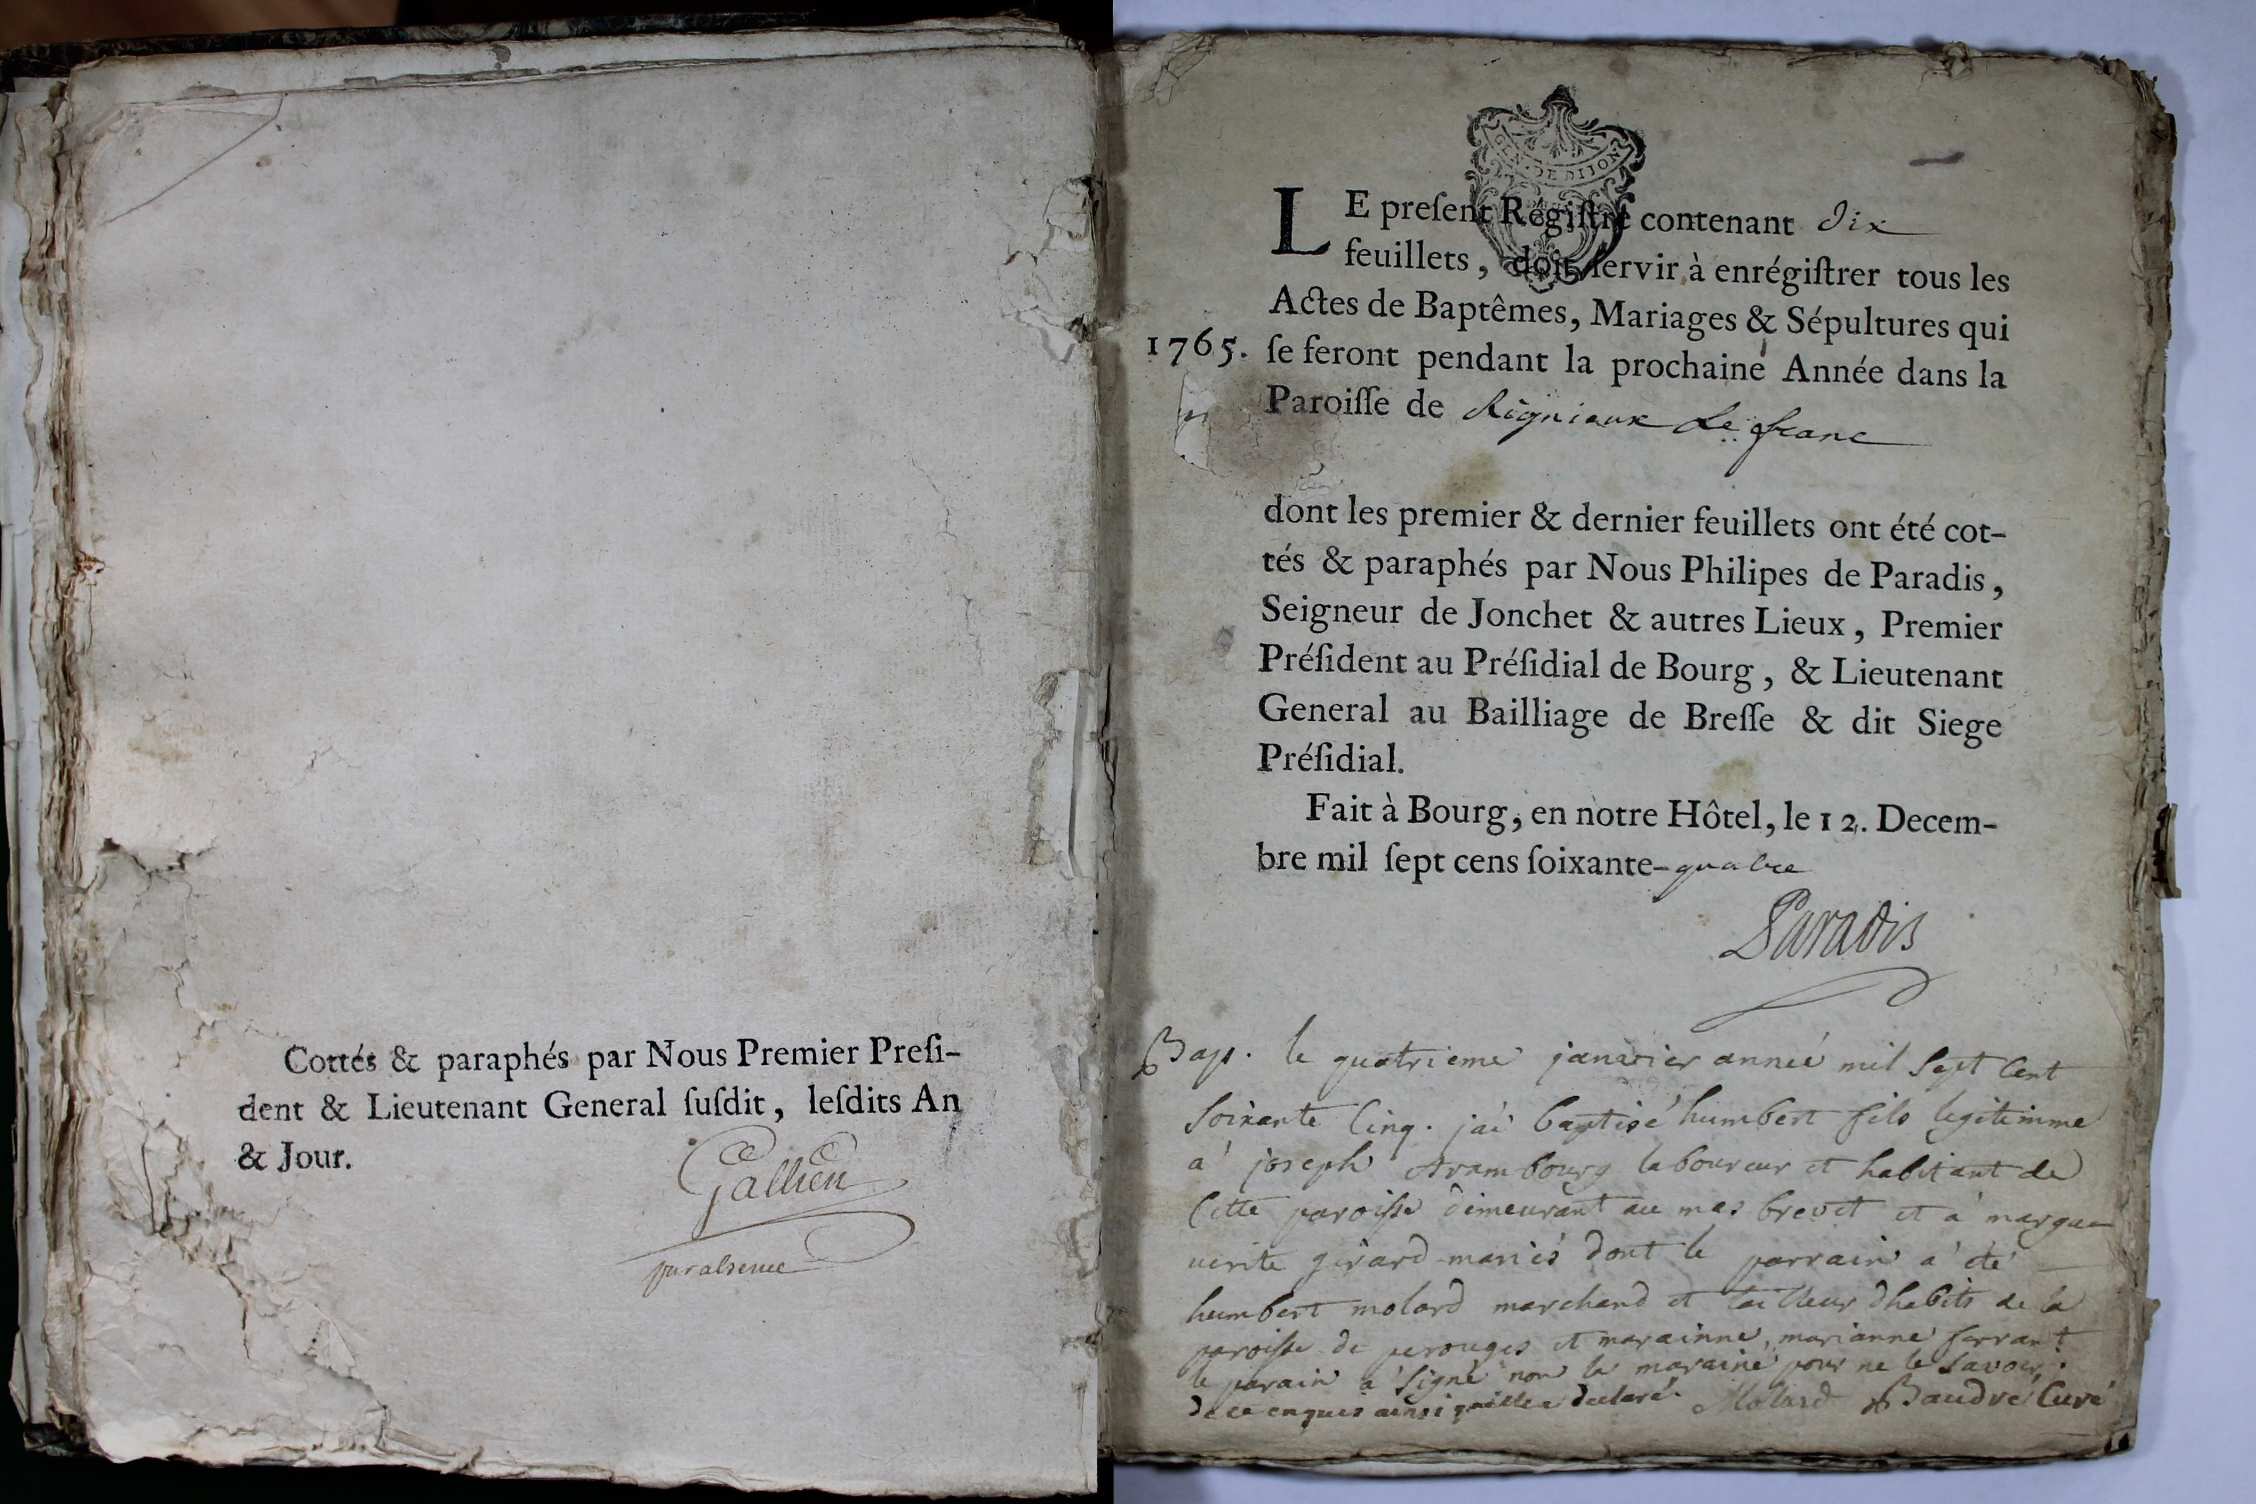 Cottés & paraphés par Nous Premier Preſi-
dent & Lieutenant General ſuſdit, leſdits An
& Jour.
Gallien
par absence
GEN · DE DIJON
LE preſent Régiſtre contenant dix
feuillets, doit ſervir à enrégiſtrer tous les
Actes de Baptêmes, Mariages & Sépultures qui
1765. ſe feront pendant la prochaine Année dans la
Paroiſſe de Rignieux Le franc
dont les premier & dernier feuillets ont été cot-
tés & paraphés par Nous Philipes de Paradis,
Seigneur de Jonchet & autres Lieux, Premier
Préſident au Préſidial de Bourg, & Lieutenant
General au Bailliage de Breſſe & dit Siege
Préſidial.
Fait à Bourg, en notre Hôtel, le 12. Decem-
bre mil ſept cens ſoixante-quatre
Paradis
Bap. le quatrieme janvier année mil sept Cent
soixante Cinq. j'ai baptisé humbert fils legitimme
a' joseph arambourg laboureur et habitant de
Cette paroisse demeurant au mas brevet et a' margue
rite girard mariés dont le parrain a' été
humbert molard marchand et tailleur dhabits de la
paroisse de perouges et marainne, marianne ferrant
le parain a' signé non la maraine pour ne le savoir,
de ce enquis ainsi quelle a declaré. Molard Baudre Curé